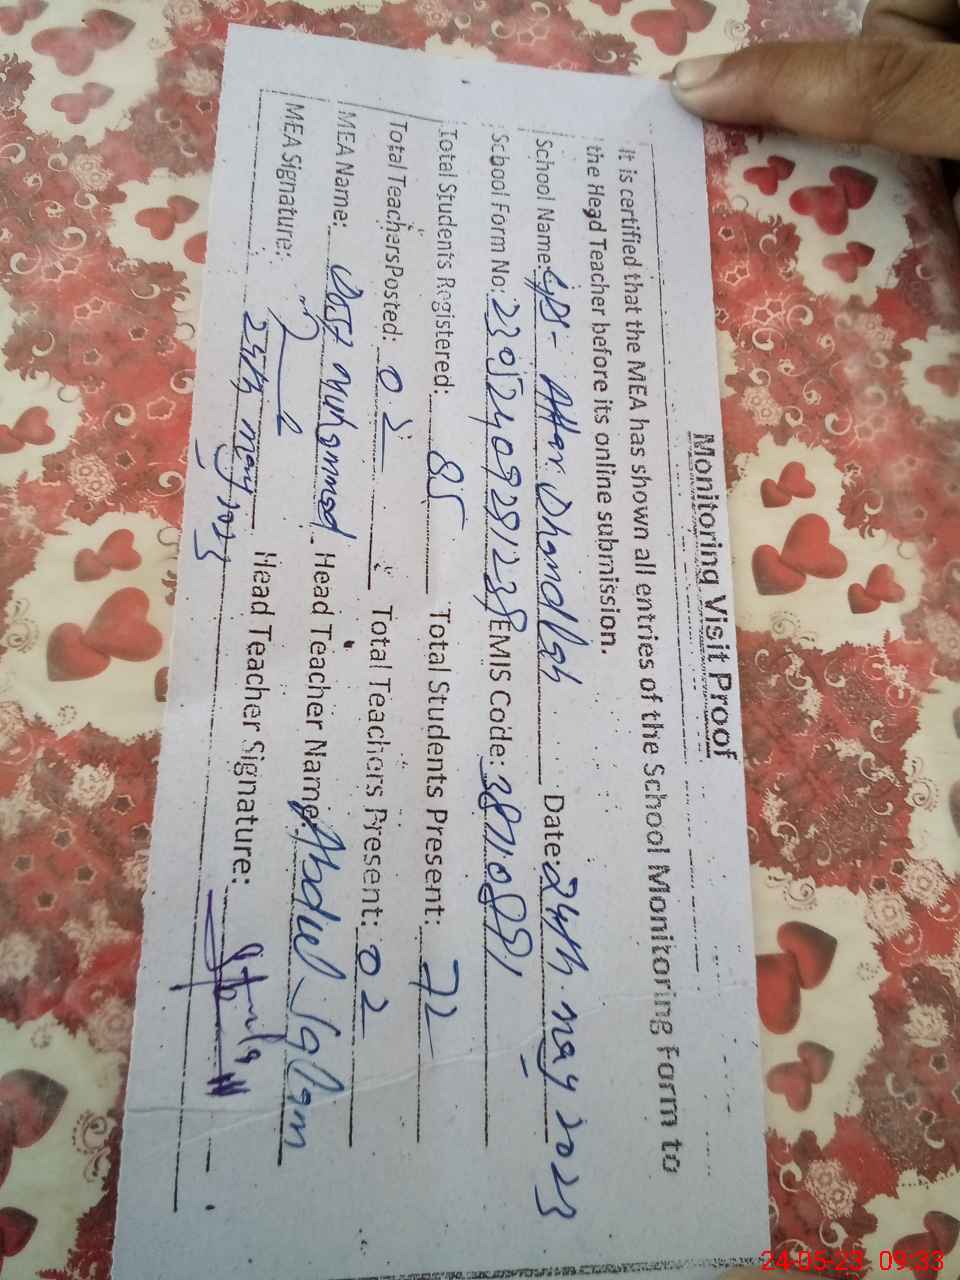 Monitoring Visit Proof
It is certified that the MEA has shown all entries of the School Monitoring Form to
the Head Teacher before its online submission.
School Name: GPS- Attar Dhandlah Date: 24th may 2023
School Form No: EMIS Code:
Total Students Registered: 85 Total Students Present: 72
Total Teachers Posted: 02 Total Teachers Present: 02
MEA Name: Dost Muhammad Head Teacher Name: Abdul Salam
MEA Signature: Head Teacher Signature:
24th may 2023
24-05-23 09:33